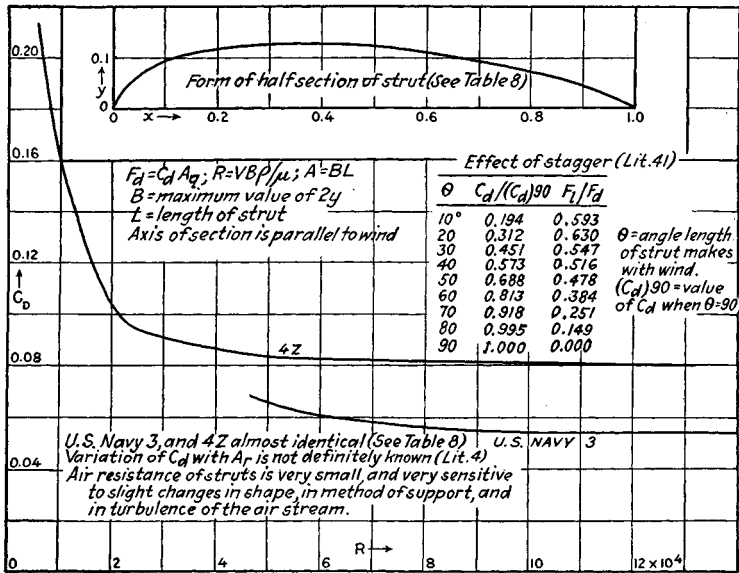 0.20
0.16
0.12
C_D
0.08
0.04
0
0.1
y
0
x
0.2
0.4
0.6
0.8
1.0
Form of half section of strut (See Table 8)
F_d = C_d A_q; R = VBρ/μ; A = BL
B = maximum value of 2y
L = length of strut
Axis of section is parallel to wind
Effect of stagger (Lit. 41)
θ C_d/(C_d)90 F_l/F_d
10° 0.194 0.593
20 0.312 0.630
30 0.451 0.547
40 0.573 0.516
50 0.688 0.478
60 0.813 0.384
70 0.918 0.251
80 0.995 0.149
90 1.000 0.000
θ = angle length
of strut makes
with wind.
(C_d)90 = value
of C_d when θ=90
4Z
U.S. NAVY 3
U.S. Navy 3, and 4Z almost identical (See Table 8)
Variation of C_d with A_r is not definitely known (Lit. 4)
Air resistance of struts is very small, and very sensitive
to slight changes in shape, in method of support, and
in turbulence of the air stream.
R →
0 2 4 6 8 10 12×10⁴